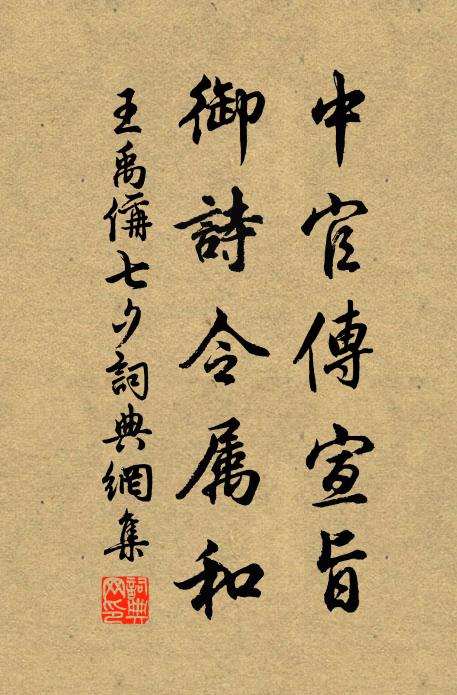 中官傳宣旨
御詩令属和
王禹偁七夕詞典網集
詞典网印